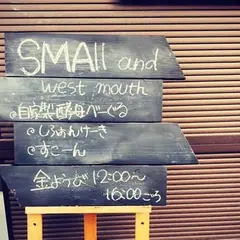 SMAll and
west mouth
●自家製酵母べーぐる
●しふぉんけーき
●すこーん
金ようび12:00〜
16:00ごろ